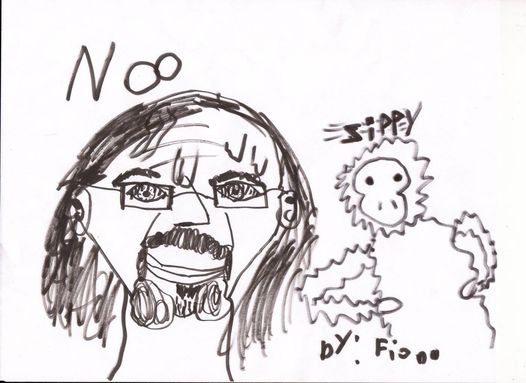 Noo
SiPPY
by: Fiooo